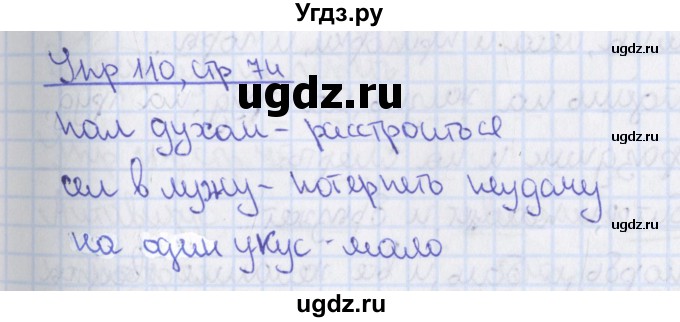 Угдз.ру
ugdz.ru ugdz.ru
Упр 110, стр 74
ugdz.ru
пал духом - расстроиться
ugdz.ru
сел в лужу - потерпеть неудачу
ugdz.ru
на один укус - мало
ugdz.ru
ugdz.ru